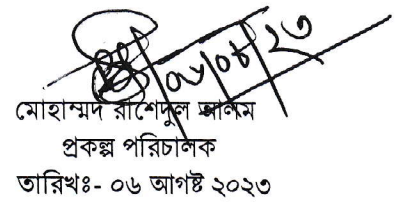 ০৬/০৮/২৩
মোহাম্মদ রাশেদুল আলম
প্রকল্প পরিচালক
তারিখঃ- ০৬ আগষ্ট ২০২৩